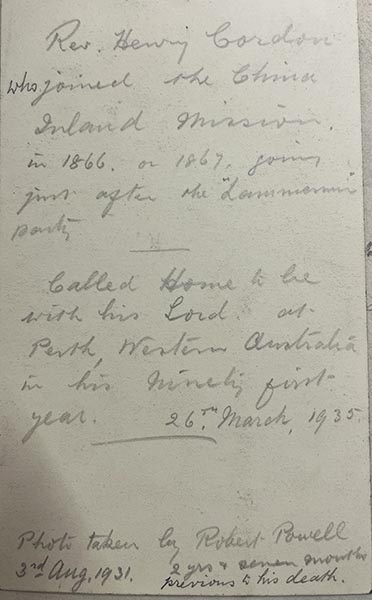 Rev. Henry Cordon
who joined the China
Inland Mission.
in 1866. or 1867, going
just after the "Lammermuir"
party
Called Home to be
with his Lord. at
Perth, Western Australia
in his Ninety first
year. 26th March, 1935.
Photo taken by Robert Powell
3rd Aug, 1931. 2 yrs & seven months
previous to his death.